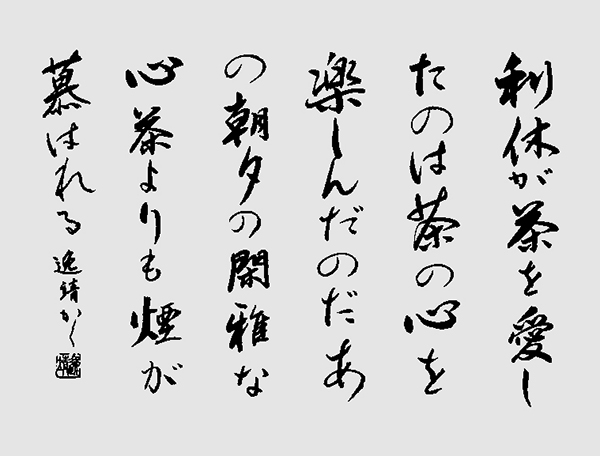 利休が茶を愛し
たのは茶の心を
楽しんだのだあ
の朝夕の閑雅な
心茶よりも煙が
慕はれる
逸靖かく